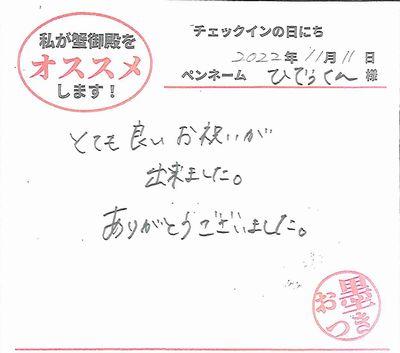 私が蟹御殿を
オススメ
します！
チェックインの日にち
2022年 11月 11日
ペンネーム ひでらくん 様
とても良いお祝いが
出来ました。
ありがとうございました。
お墨つき